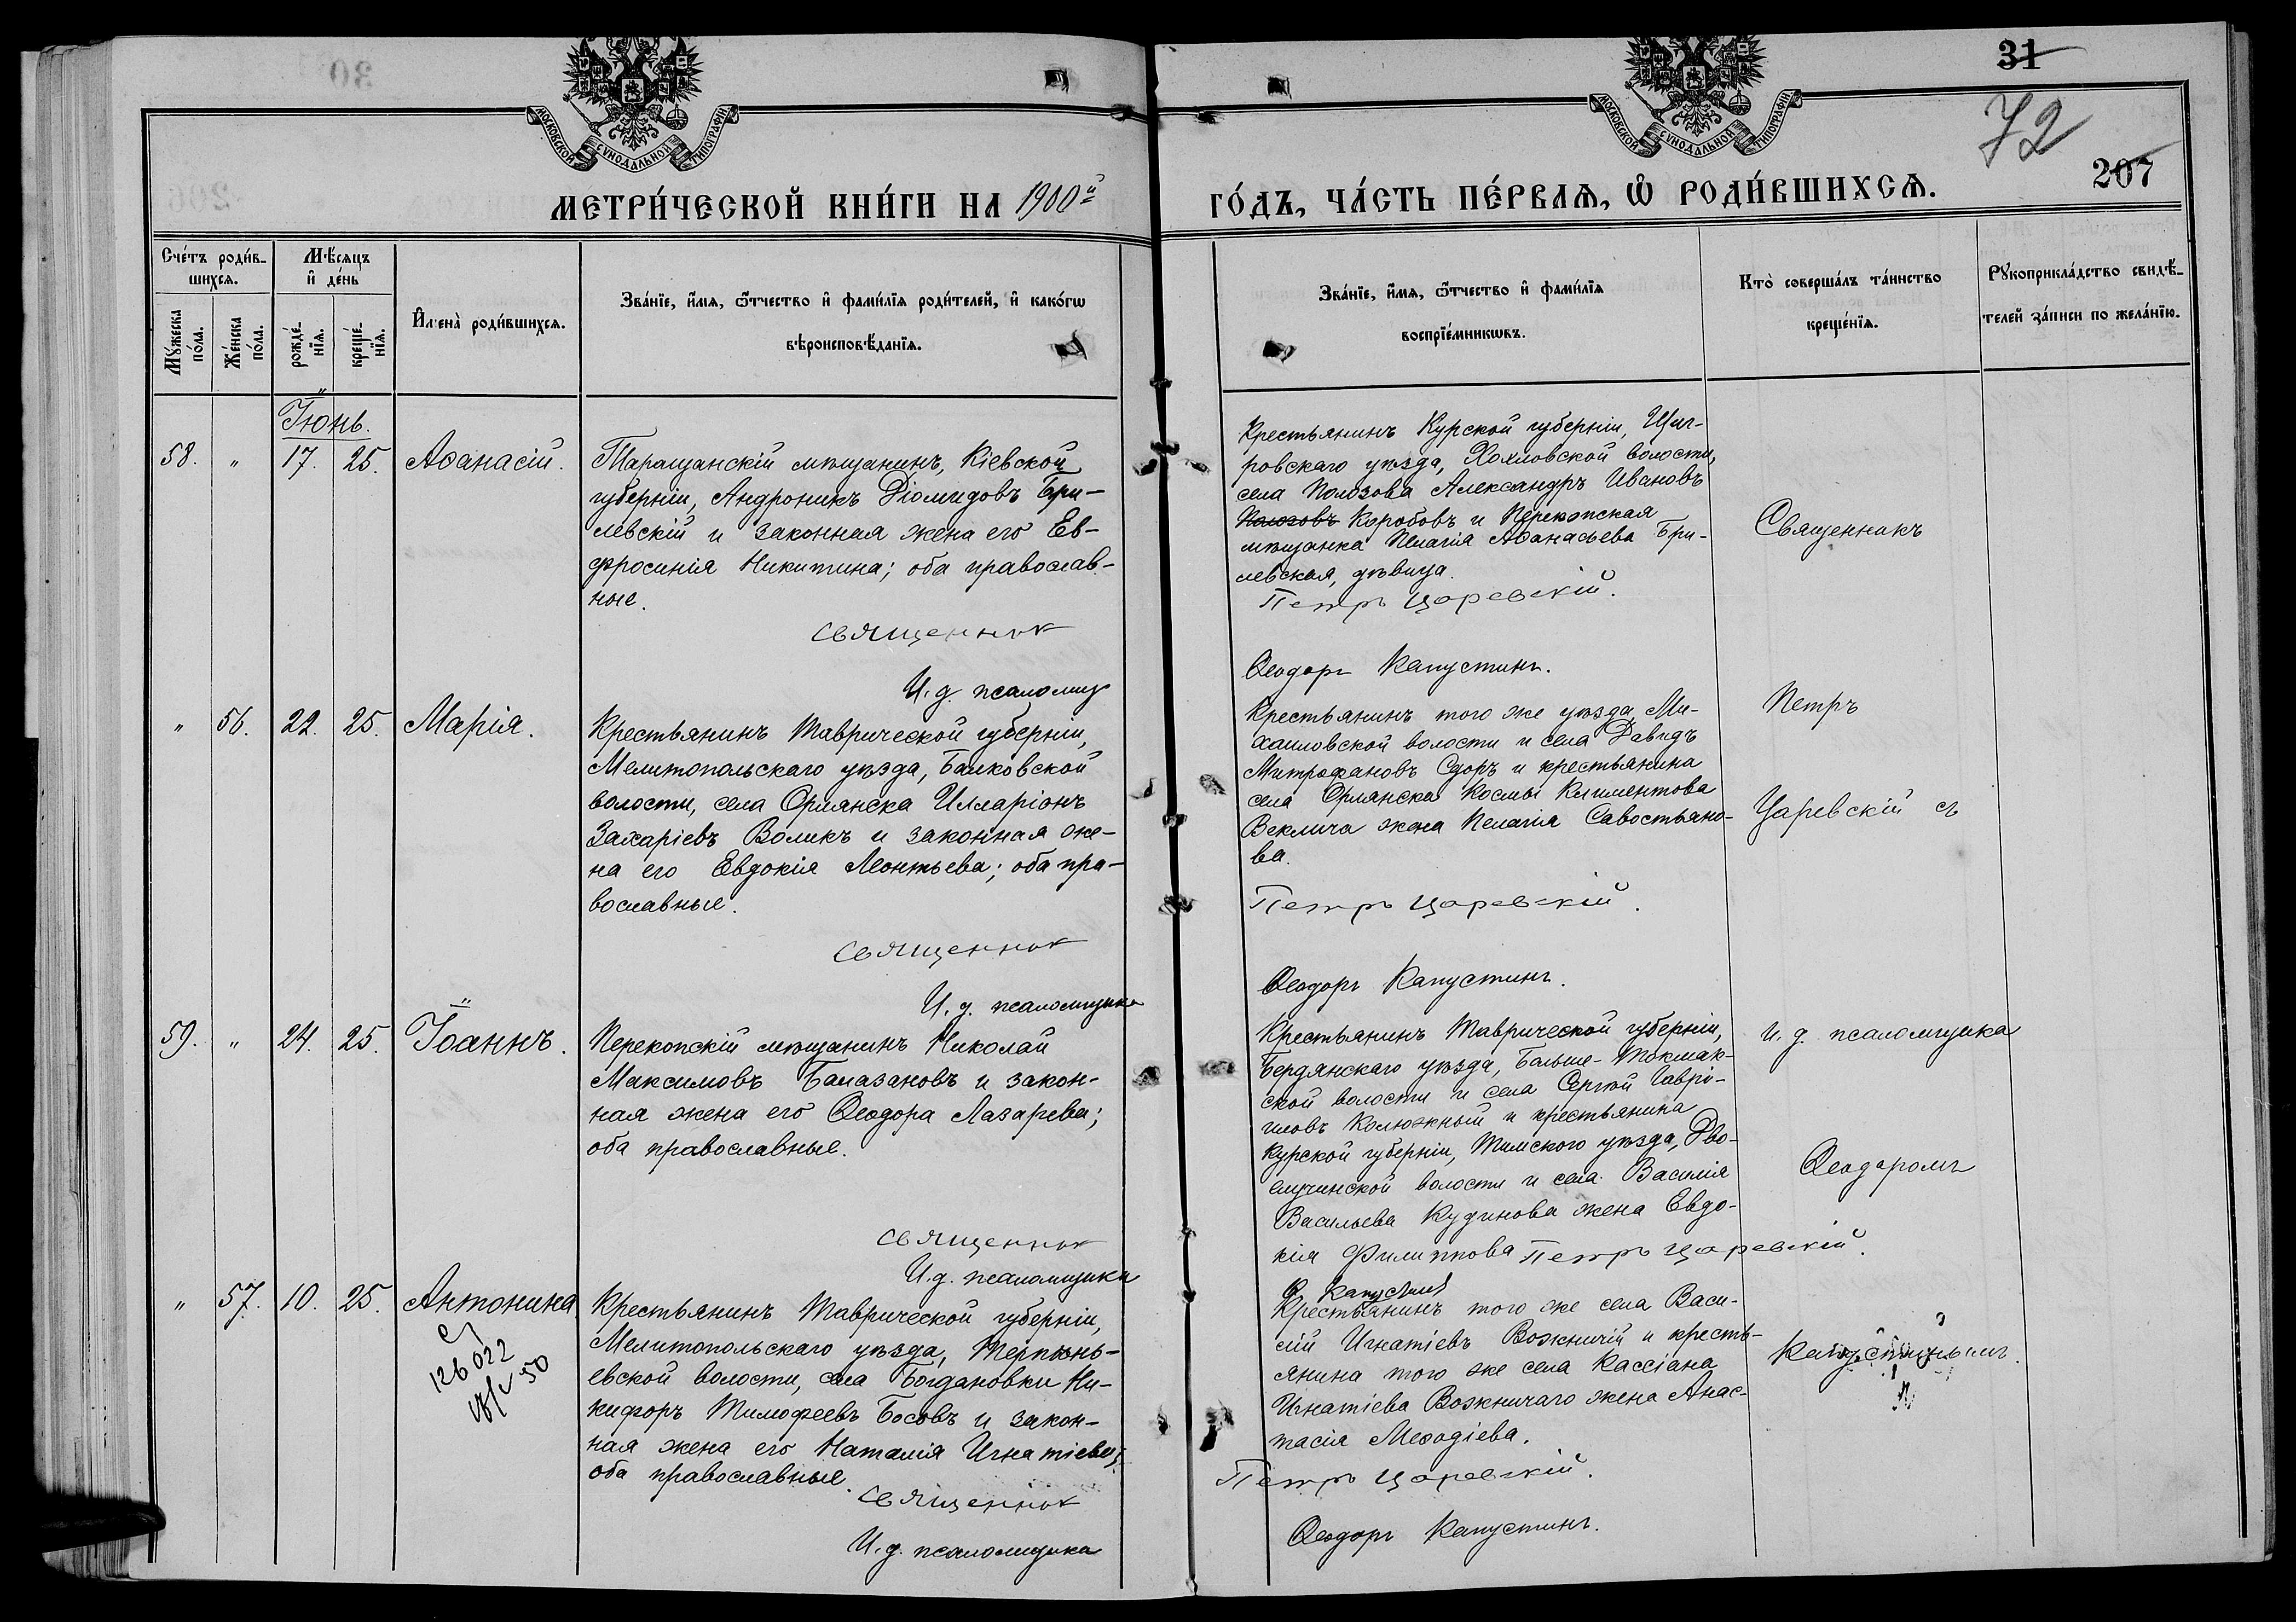 31
72
207
МОСКОВСКОЙ СѴНОДАЛЬНОЙ ТИПОГРАФІИ
МОСКОВСКОЙ СѴНОДАЛЬНОЙ ТИПОГРАФІИ
МЕТРИ́ЧЕСКОЙ КНИ́ГИ НА 1900й
ГО́ДЪ, ЧА́СТЬ ПЕ́РВАѦ, Ѡ҆ РОДИ́ВШИХСѦ.
Сче́тъ роди́в-
шихсѧ.
Мѣ́сѧцъ
и҆ де́нь
Мꙋ́жеска по́ла.
Же́нска по́ла.
рожде́-нїѧ.
креще́-нїѧ.
И҆мена̀ роди́вшихсѧ.
Зва́нїе, и҆́мѧ, ѻ҆́тчество и҆ фами́лїѧ роди́телей, и҆ како́гѡ
вѣроисповѣ́данїѧ.
Зва́нїе, и҆́мѧ, ѻ҆́тчество и҆ фами́лїѧ
воспрїе́мникѡвъ.
Кто̀ соверша́лъ та́инство
креще́нїѧ.
Рꙋкоприкла́дство свидѣ́-
телей за́писи по жела́нїю.
Іюнь.
58. " 17. 25. Аѳанасій.
Таращанскій мѣщанинъ, Кіевской
губерніи, Андроникъ Діомидовъ Бри-
левскій и законная жена его Ев-
фросинія Никитина; оба православ-
ные.
священник
И. д. псаломщ
Крестьянинъ Курской губерніи, Щиг-
ровскаго уѣзда, Хохловской волости,
села Полозова Александръ Ивановъ
Полозовъ Коробовъ и Перекопская
мѣщанка Пелагія Аѳанасьева Бри-
левская, дѣвица.
Петръ Царевскій.
Ѳеодоръ Капустинъ.
Священникъ
" 56. 22. 25. Марія.
Крестьянинъ Таврической губерніи,
Мелитопольскаго уѣзда, Балковской
волости, села Орлянска Илларіонъ
Захаріевъ Воликъ и законная же-
на его Евдокія Леонтьева; оба пра-
вославные.
священник
И. д. псаломщика
Крестьянинъ того же уѣзда, Ми-
хайловской волости и села Давидъ
Митрофановъ Сдоръ и крестьянина
села Орлянска Космы Климентова
Веклича жена Пелагія Савостьяно-
ва.
Петръ Царевскій.
Ѳеодоръ Капустинъ.
Петръ
Царевскій съ
59. " 24. 25. Іоаннъ.
Перекопскій мѣщанинъ Николай
Максимовъ Балазановъ и закон-
ная жена его Ѳеодора Лазарева;
оба православные.
священник
И. д. псаломщика
Крестьянинъ Таврической губерніи,
Бердянскаго уѣзда, Больше-Токмак-
ской волости и села Сергѣй Гаврі-
иловъ Колюжный и крестьянина
Курской губерніи, Тимского уѣзда, Дво-
елучинской волости и села Василія
Васильева Кудинова жена Евдо-
кія Филиппова Петръ Царевскій.
Ѳ. Капустинъ
и. д. псаломщика
Ѳеодоромъ
" 57. 10. 25. Антонина.
126022
50
Крестьянинъ Таврической губерніи,
Мелитопольскаго уѣзда, Терпѣнь-
евской волости, села Богдановки Ни-
кифоръ Тимофеевъ Босовъ и закон-
ная жена его Наталія Игнатіева;
оба православные.
священник
И. д. псаломщика
Крестьянинъ того же села Васи-
лій Игнатіевъ Возжичій и кресть-
янина того же села Кассіана
Игнатіева Возжичаго жена Анас-
тасія Меѳодіева.
Петръ Царевскій.
Ѳеодоръ Капустинъ.
Капустинымъ.